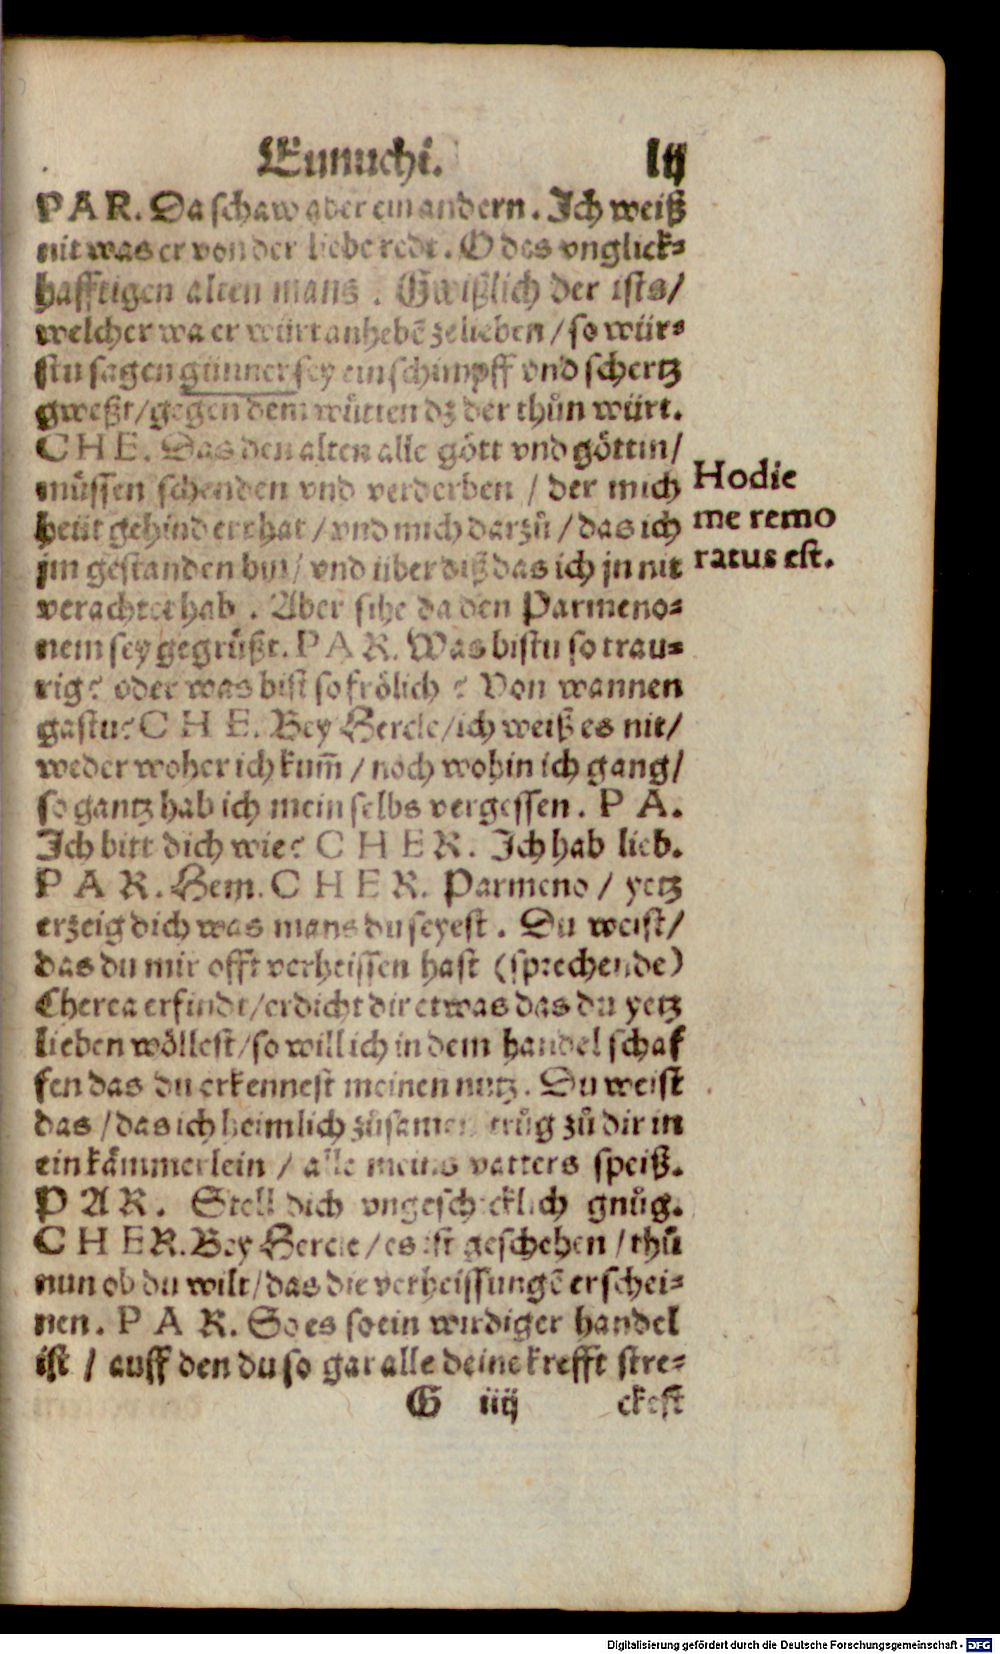 Eunuchi. lij
PAR. Da schaw aber ein andern. Ich weiß
nit was er von der liebe redt. O des vnglick=
hafftigen alten mans. Gwißlich der ists/
welcher wa er würt anhebē zelieben/ so wür=
stu sagen günner sey ein schimpff vnd schertz
gweßt/ gegen dem wütten dz der thůn würt.
CHE. Das den alten alle gött vnd göttin/
müssen schenden vnd verderben / der mich
Hodie
heüt gehindert hat / vnd mich darzů / das ich
me remo
jm gestanden bin/ vnd über diß das ich jn nit
ratus est.
verachtet hab. Aber sihe da den Parmeno=
nem sey gegrüßt. PAR. Was bistu so trau=
rig? oder was bist so frölich? Von wannen
gastu? CHE. Bey Hercle/ ich weiß es nit/
weder woher ich kum̄ / noch wohin ich gang/
so gantz hab ich mein selbs vergessen. PA.
Ich bitt dich wie? CHER. Ich hab lieb.
PAR. Hem. CHER. Parmeno / yetz
erzeig dich was mans du seyest. Du weist/
das du mir offt verheissen hast (sprechende)
Cherea erfindt/ erdicht dir etwas das du yetz
lieben wöllest/ so will ich in dem handel schaf
fen das du erkennest meinen nutz. Du weist
das / das ich heimlich zůsamen trůg zů dir in
ein kämmerlein / alle meins vatters speiß.
PAR. Stell dich vngeschicklich gnůg.
CHER. Bey Hercle/ es ist geschehen / thů
nun ob du wilt/ das die verheissungē erschei=
nen. PAR. So es so ein wirdiger handel
ist / auff den du so gar alle deine krefft stre=
G iiij ckest
Digitalisierung gefördert durch die Deutsche Forschungsgemeinschaft - DFG